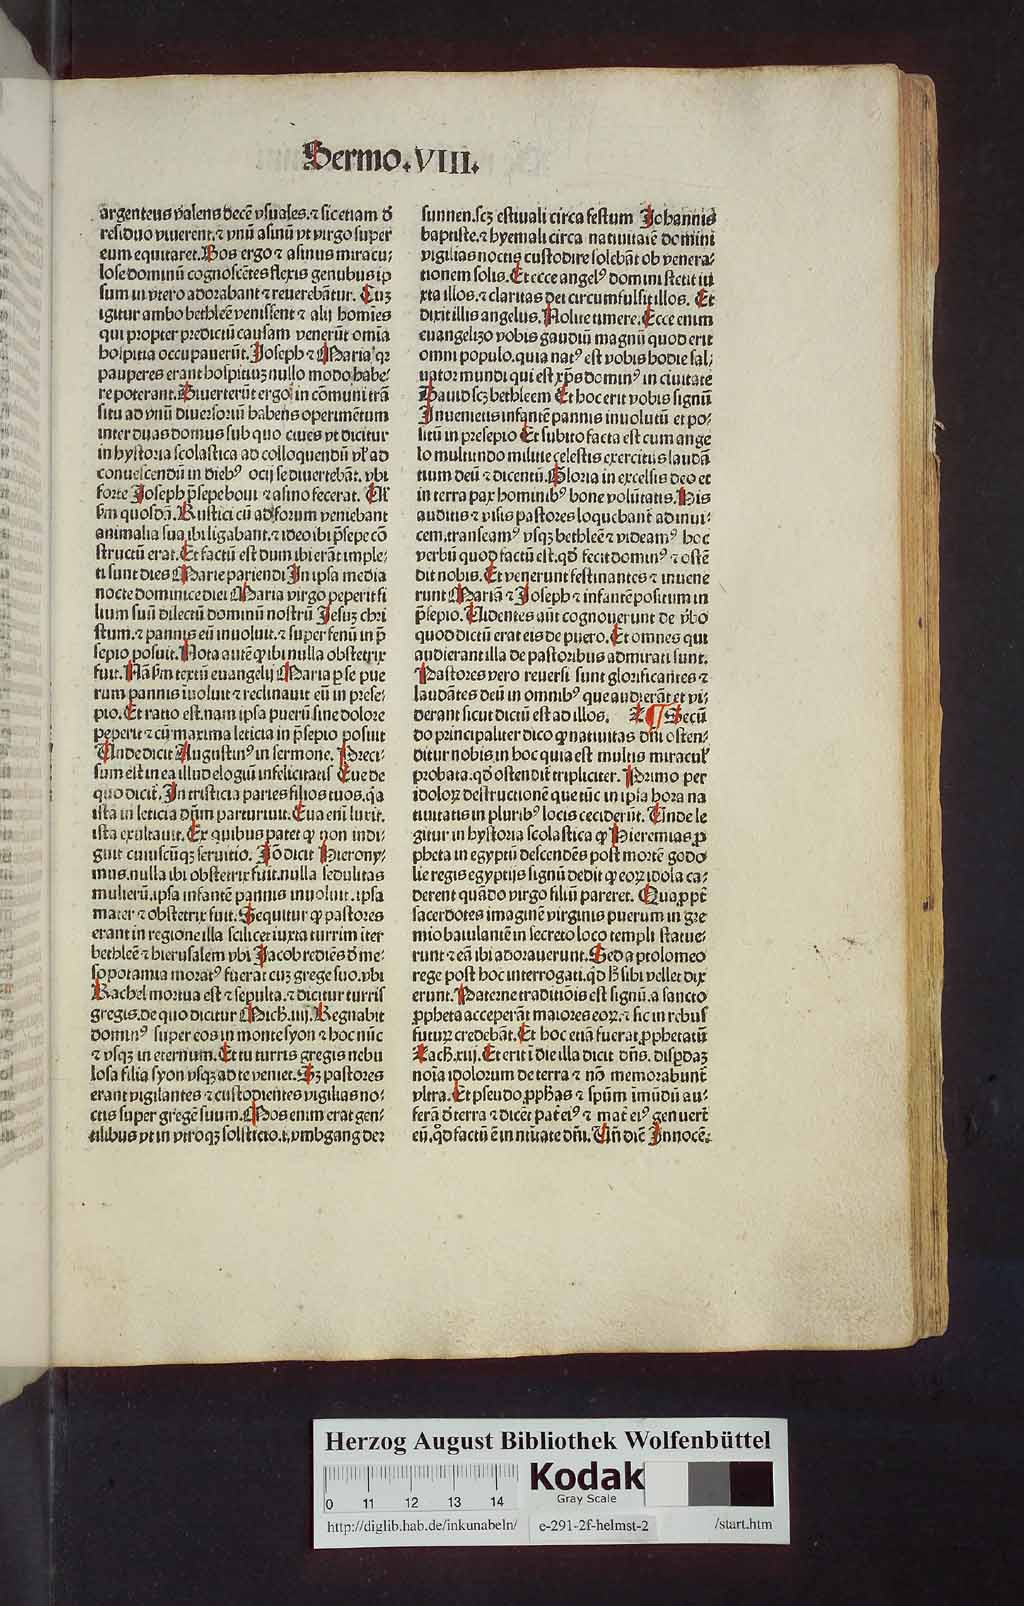 Sermo.VIII.
argenteus valens decē vsuales.⁊ sic etiam d̄
residuo viuerent.⁊ vnū asinū vt virgo super
eum equitaret. Bos ergo ⁊ asinus miracu⸗
lose dominū cognoscētes flexis genubus ip
sum in vtero adorabant ⁊ reuerebātur. Cuꝫ
igitur ambo bethleē venissent ⁊ alij homies
qui propter predictū causam venerūt om̄ia
hospitia occupauerūt. Joseph ⁊ Maria qꝛ
pauperes erant hospitiuꝫ nullo modo habe⸗
re poterant. Diuerterūt ergo in cōmuni trā
situ ad vnū diuersoriū habens operimētum
inter duas domus sub quo ciues vt dicitur
in hystoria scolastica ad colloquendū vl̓ ad
conuescendū in diebꝰ ocij se diuertebāt. vbi
forte Joseph p̄sepe boui ⁊ asino fecerat. Ul̓
ẜm quosdā. Rustici cū ad forum veniebant
animalia sua ibi ligabant.⁊ ideo ibi p̄sepe cō
structū erat. Et factū est dum ibi erāt imple⸗
ti sunt dies Marie pariendi In ipsa media
nocte dominice diei Maria virgo peperit fi
lium suū dilectū dominū nostrū Jesuꝫ chri
stum.⁊ pannis eū inuoluit.⁊ super fenū in p̄
sepio posuit. Nota autē ꝙ ibi nulla obstetrix
fuit. Nā ẜm textū euangelij Maria ꝑ se pue
rum pannis īuoluit ⁊ reclinauit eū in prese⸗
pio. Et ratio est. nam ipsa puerū sine dolore
peperit ⁊ cū maxima leticia in p̄sepio posuit
Unde dicit Augustinꝰ in sermone. Preci⸗
sum est in ea illud elogiū infelicitatis Eue de
quo dicit̄. In tristicia paries filios tuos. q̄a
ista in leticia dn̄m parturiuit. Eua eni luxit.
ista exultauit. Ex quibus patet ꝙ non indi⸗
guit cuiuscūqꝫ seruitio. Jō dicit Hierony⸗
mus. nulla ibi obstetrix fuit. nulla sedulitas
mulierū. ipsa infantē pannis inuoluit. ipsa
mater ⁊ obstetrix fuit. Sequitur ꝙ pastores
erant in regione illa scilicet iuxta turrim iter
bethleē ⁊ hierusalem vbi Jacob rediēs d̄ me⸗
sopotamia moratꝰ fuerat cuꝫ grege suo. vbi
Rachel mortua est ⁊ sepulta.⁊ dicitur turris
gregis. de quo dicitur Mich̄. iiij. Regnabit
dominꝰ super eos in monte syon ⁊ hoc nūc
⁊ vsqꝫ in eternum. Et tu turris gregis nebu
losa filia syon vsqꝫ ad te veniet. Sꝫ pastores
erant vigilantes ⁊ custodientes vigilias no⸗
ctis super gregē suum. Mos enim erat gen⸗
tilibus vt in vtroqꝫ solsticio. i. vmbgang der
sunnen. scꝫ estiuali circa festum Johannis
baptiste.⁊ hyemali circa natiuitatē domini
vigilias noctis custodire solebāt ob venera⸗
tionem solis. Et ecce angelꝰ domini stetit iu
xta illos.⁊ claritas dei circumfulsit illos. Et
dixit illis angelus. Nolite timere. Ecce enim
euangelizo vobis gaudiū magnū quod erit
omni populo. quia natꝰ est vobis hodie sal⸗
uator mundi qui est xp̄s dominꝰ in ciuitate
Dauid scꝫ bethleem Et hoc erit vobis signū
Inuenietis infantē pannis inuolutū et po⸗
sitū in presepio Et subito facta est cum ange
lo multitudo militie celestis exercitus laudā
tium deū ⁊ dicentū. Gloria in excelsis deo et
in terra pax hominibꝰ bone volūtatis. His
auditis ⁊ visis pastores loquebant̄ ad inui⸗
cem. transeamꝰ vsqꝫ bethleē ⁊ videamꝰ hoc
verbū quod factū est. qd̄ fecit dominꝰ ⁊ ostē
dit nobis. Et venerunt festinantes ⁊ inuene
runt Mariā ⁊ Joseph ⁊ infantē positum in
p̄sepio. Uidentes aūt cognouerunt de v̓bo
quod dictū erat eis de puero. Et omnes qui
audierant illa de pastoribus admirati sunt.
Pastores vero reuersi sunt glorificantes ⁊
laudātes deū in omnibꝰ que audierāt et vi⸗
derant sicut dictū est ad illos. ¶ Secū
do principaliter dico ꝙ natiuitas dn̄i osten⸗
ditur nobis in hoc quia est multis miracul̓
probata. qd̄ ostendit̄ tripliciter. Primo per
idoloꝝ destructionē que tūc in ipsa hora na
tiuitatis in pluribꝰ locis ceciderūt. Unde le
gitur in hystoria scolastica ꝙ Hieremias ꝓ
pheta in egyptū descendēs post mortē godo
lie regis egyptijs signū dedit ꝙ eoꝝ idola ca⸗
derent quādo virgo filiū pareret. Quaꝓpt̄
sacerdotes imaginē virginis puerum in gre
mio baiulantē in secreto loco templi statue⸗
runt ⁊ eā ibi adorauerunt. Sed a ptolomeo
rege post hoc interrogati. qd̄ h̄ sibi vellet dix
erunt. Paterne traditiōis est signū. a sancto
ꝓpheta acceperāt maiores eoꝝ.⁊ sic in rebus
futurꝫ credebāt. Et hoc etiā fuerat ꝓphetatū
Zach̄. xiij. Et erit ī die illa dicit dn̄s. disꝑdaꝫ
noīa idolorum de terra ⁊ nō memorabunt̄
vltra. Et pseudo ꝓph̄as ⁊ spūm īmūdū au⸗
ferā d̄ terra ⁊ dicēt pat̄ eiꝰ ⁊ mat̄ eiꝰ genuert̄
eū. qd̄ factū ē in natiuitate dn̄i. Un̄ dic̄ Innocē⸗
Herzog August Bibliothek Wolfenbüttel
0 11 12 13 14
Kodak
Gray Scale
http://diglib.hab.de/inkunabeln/ e-291-2f-helmst-2 /start.htm